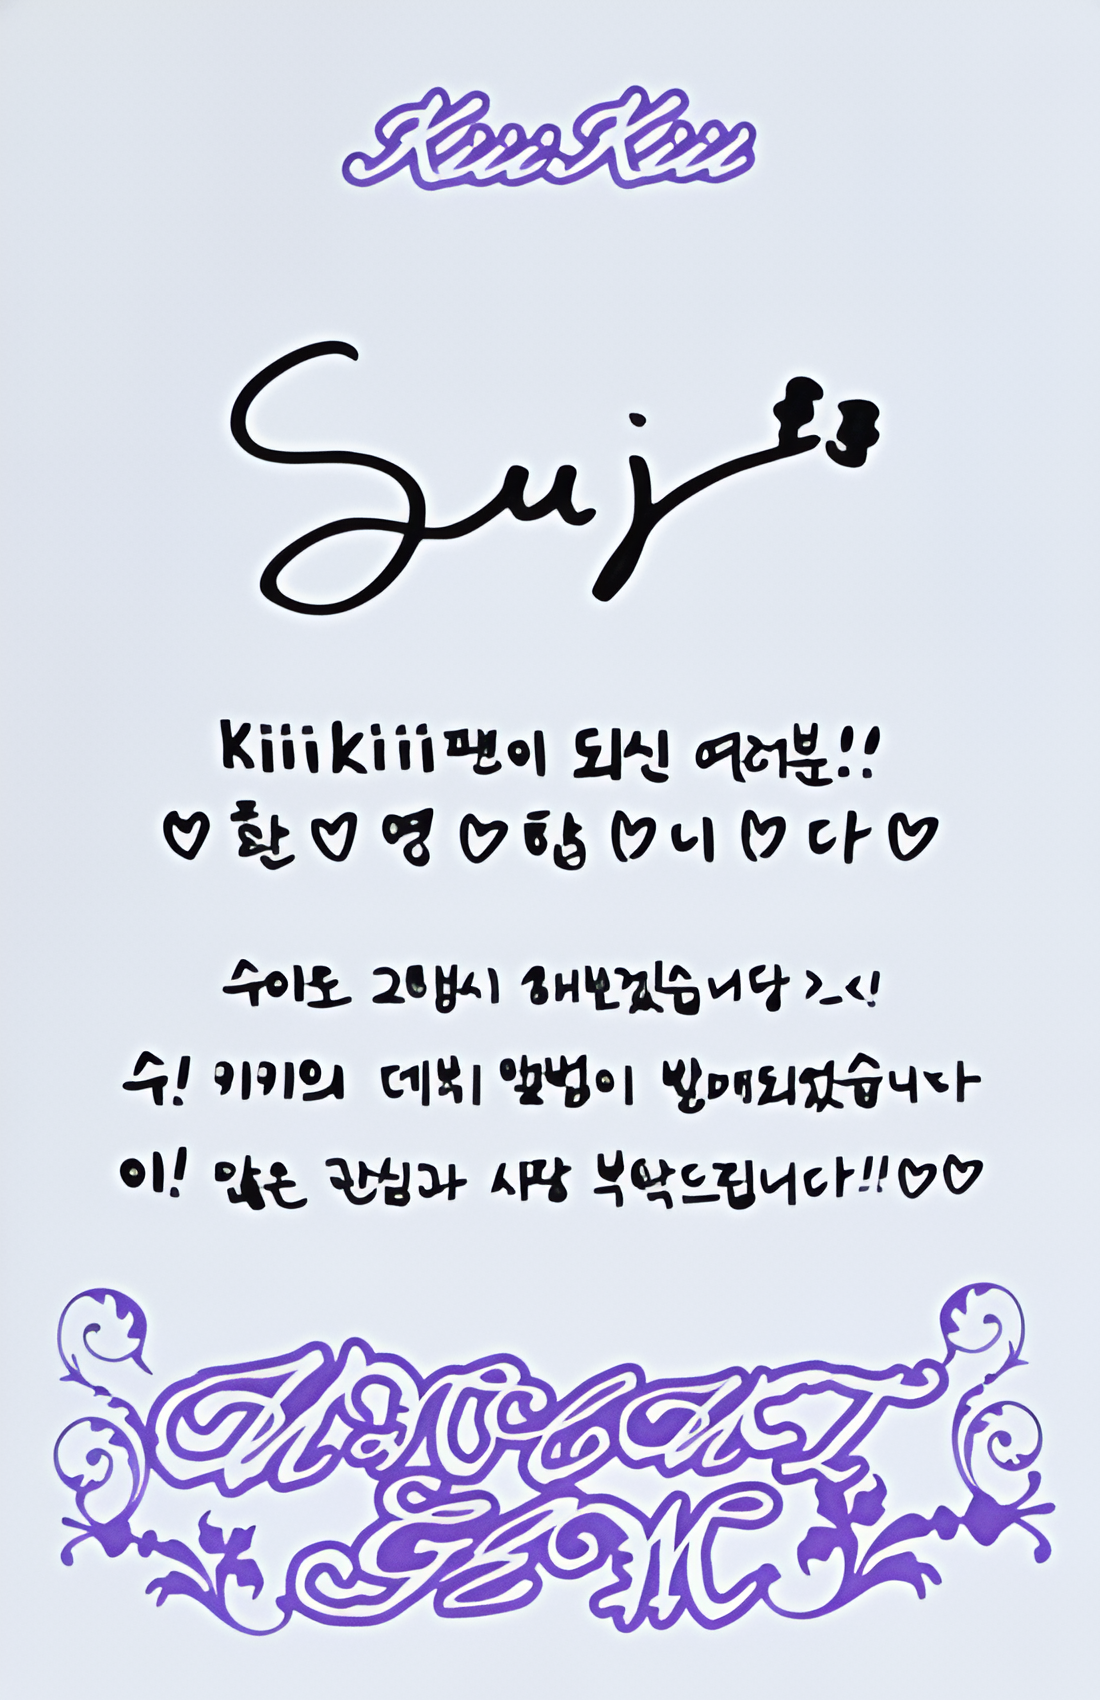 KiiiKiii
Suj
Kiiikiii팬이 되신 여러분!!
♡환♡영♡합♡니♡다♡
수이도 2행시 해보겠습니당 >_<!
수! 키키의 데뷔 앨범이 발매되었습니다
이! 많은 관심과 사랑 부탁드립니다!!♡♡
UNCUT
GEM